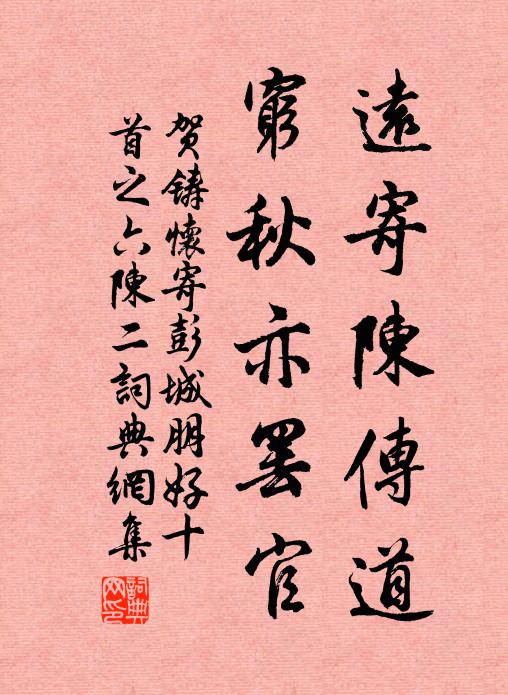 遠寄陳傳道
窮秋亦罷官
賀鑄懷寄彭城朋好十
首之六陳二詞典網集
詞典網印